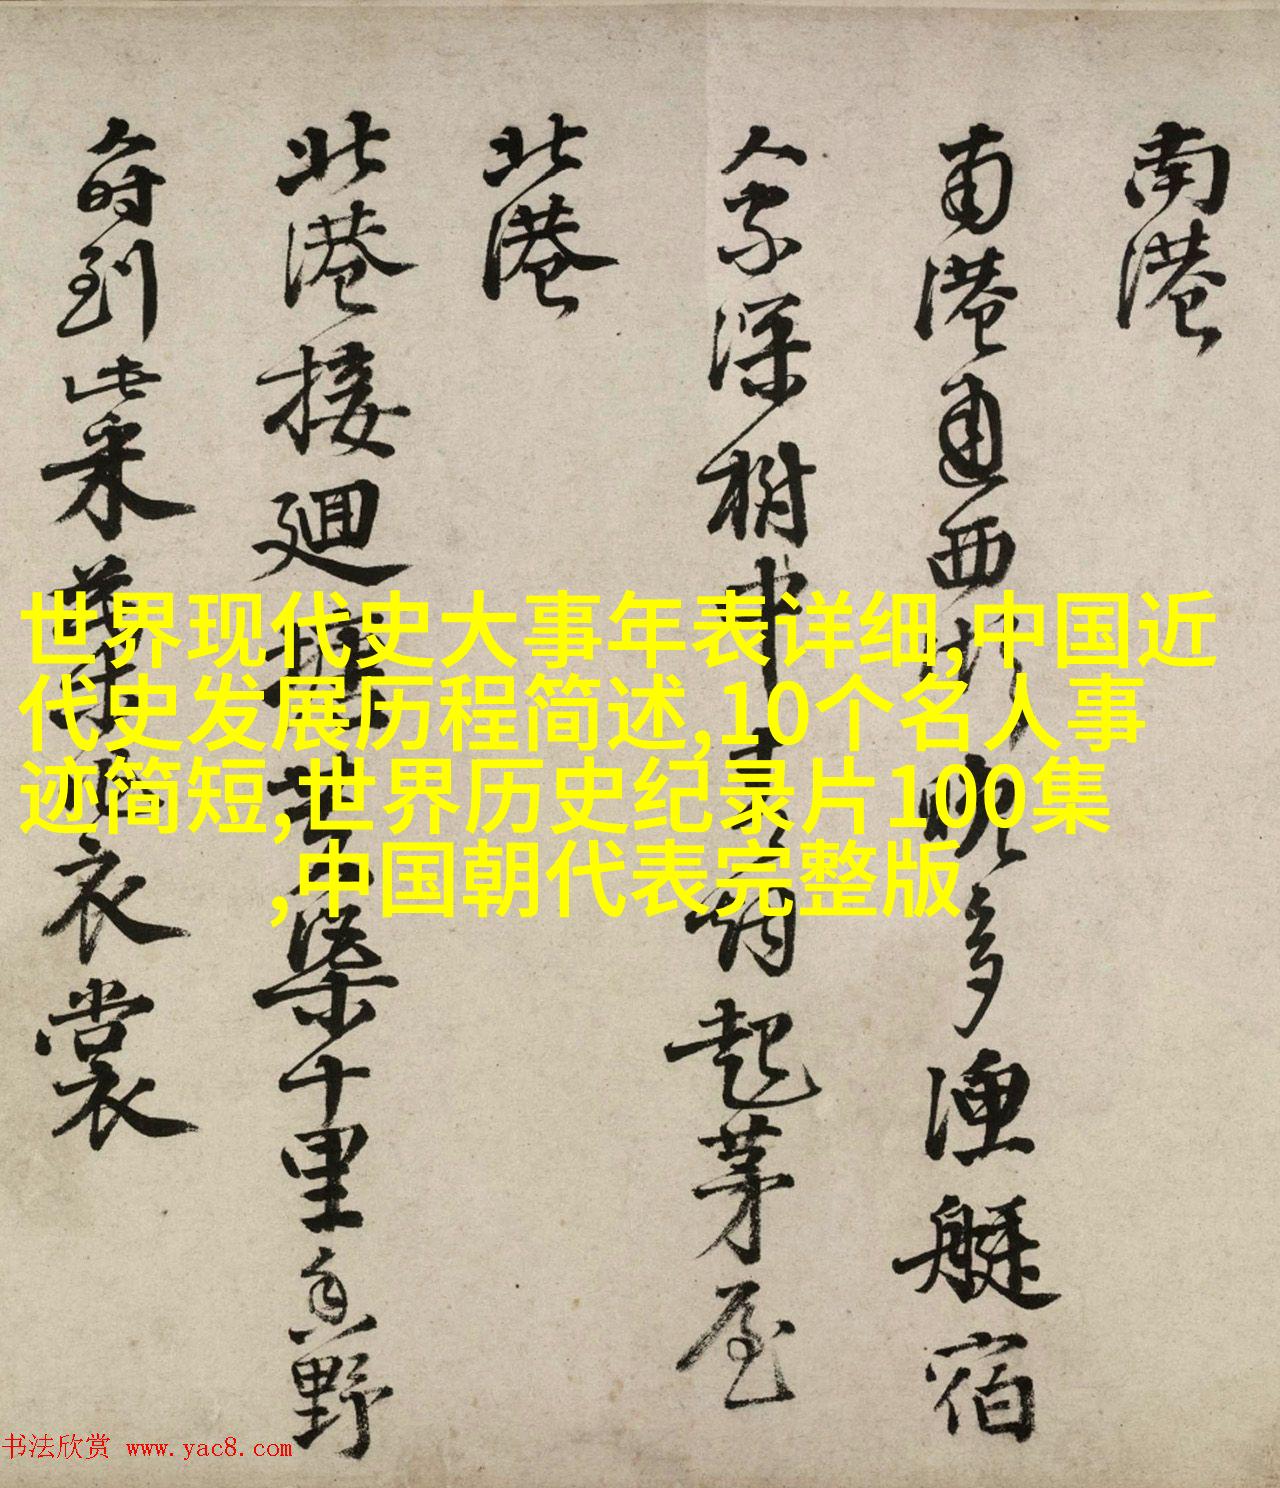 南港
南港通西湖晚多漁艇宿
人家深樹中起茅屋
北港
北港接迴渠十里香野
人时到此采衣裳
世界现代史大事年表详细,中国近
代史发展历程简述,10个名人事
迹简短,世界历史纪录片100集
,中国朝代表完整版
书法欣赏 www.yac8.com